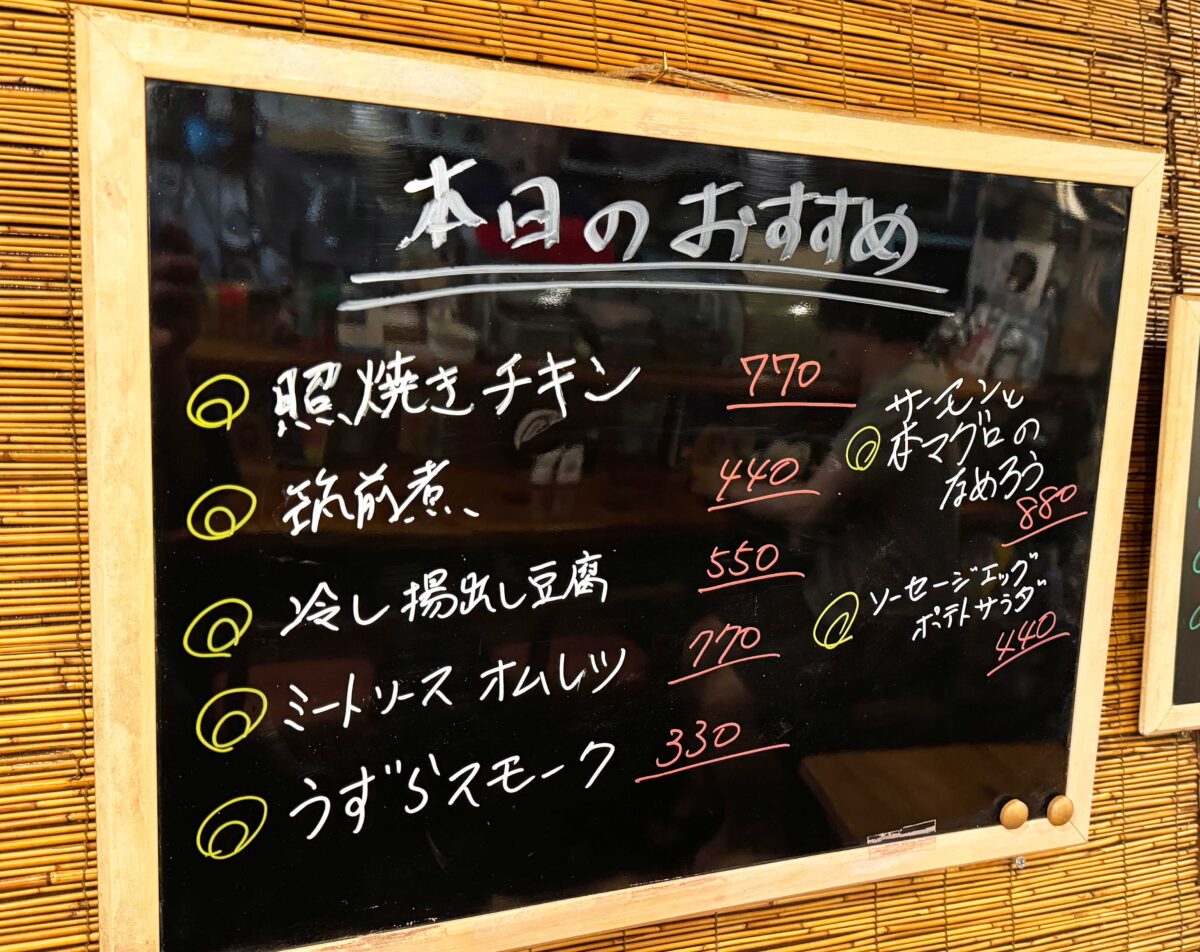 本日のおすすめ
照焼きチキン 770
筑前煮 440
冷し揚出し豆腐 550
ミートソース オムレツ 770
うずらスモーク 330
サーモンと
本マグロの
なめろう
880
ソーセージエッグ
ポテトサラダ
440